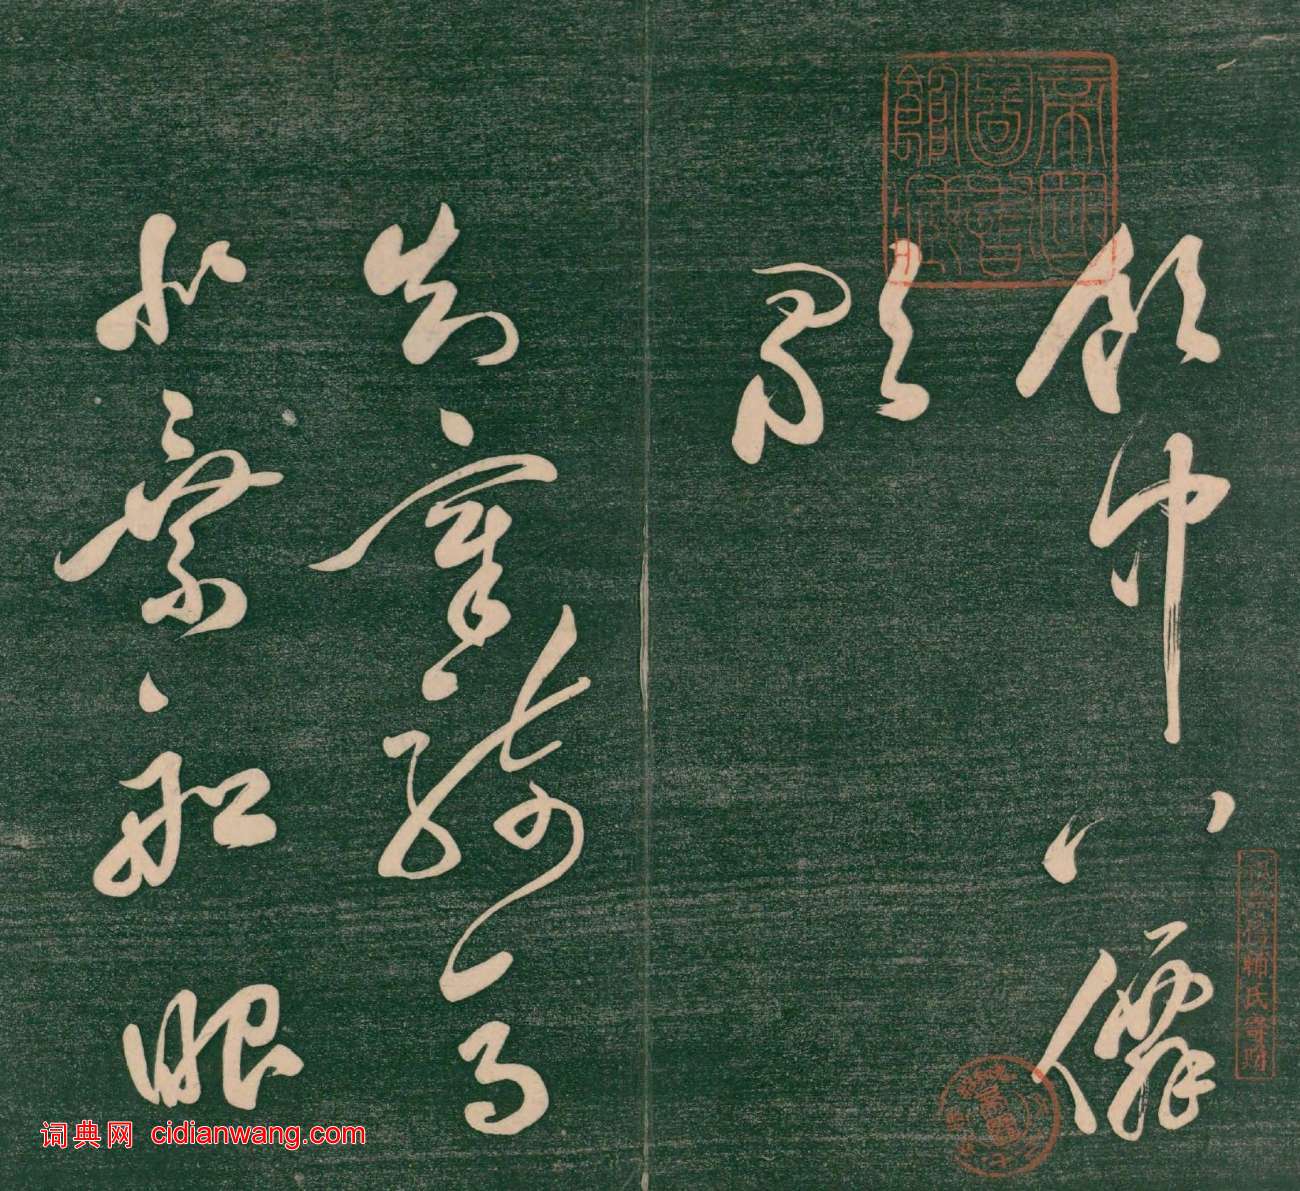 飲中八僊
歌
知章騎馬
似乘船眼
帝國圖書館藏
词典网 cidianwang.com